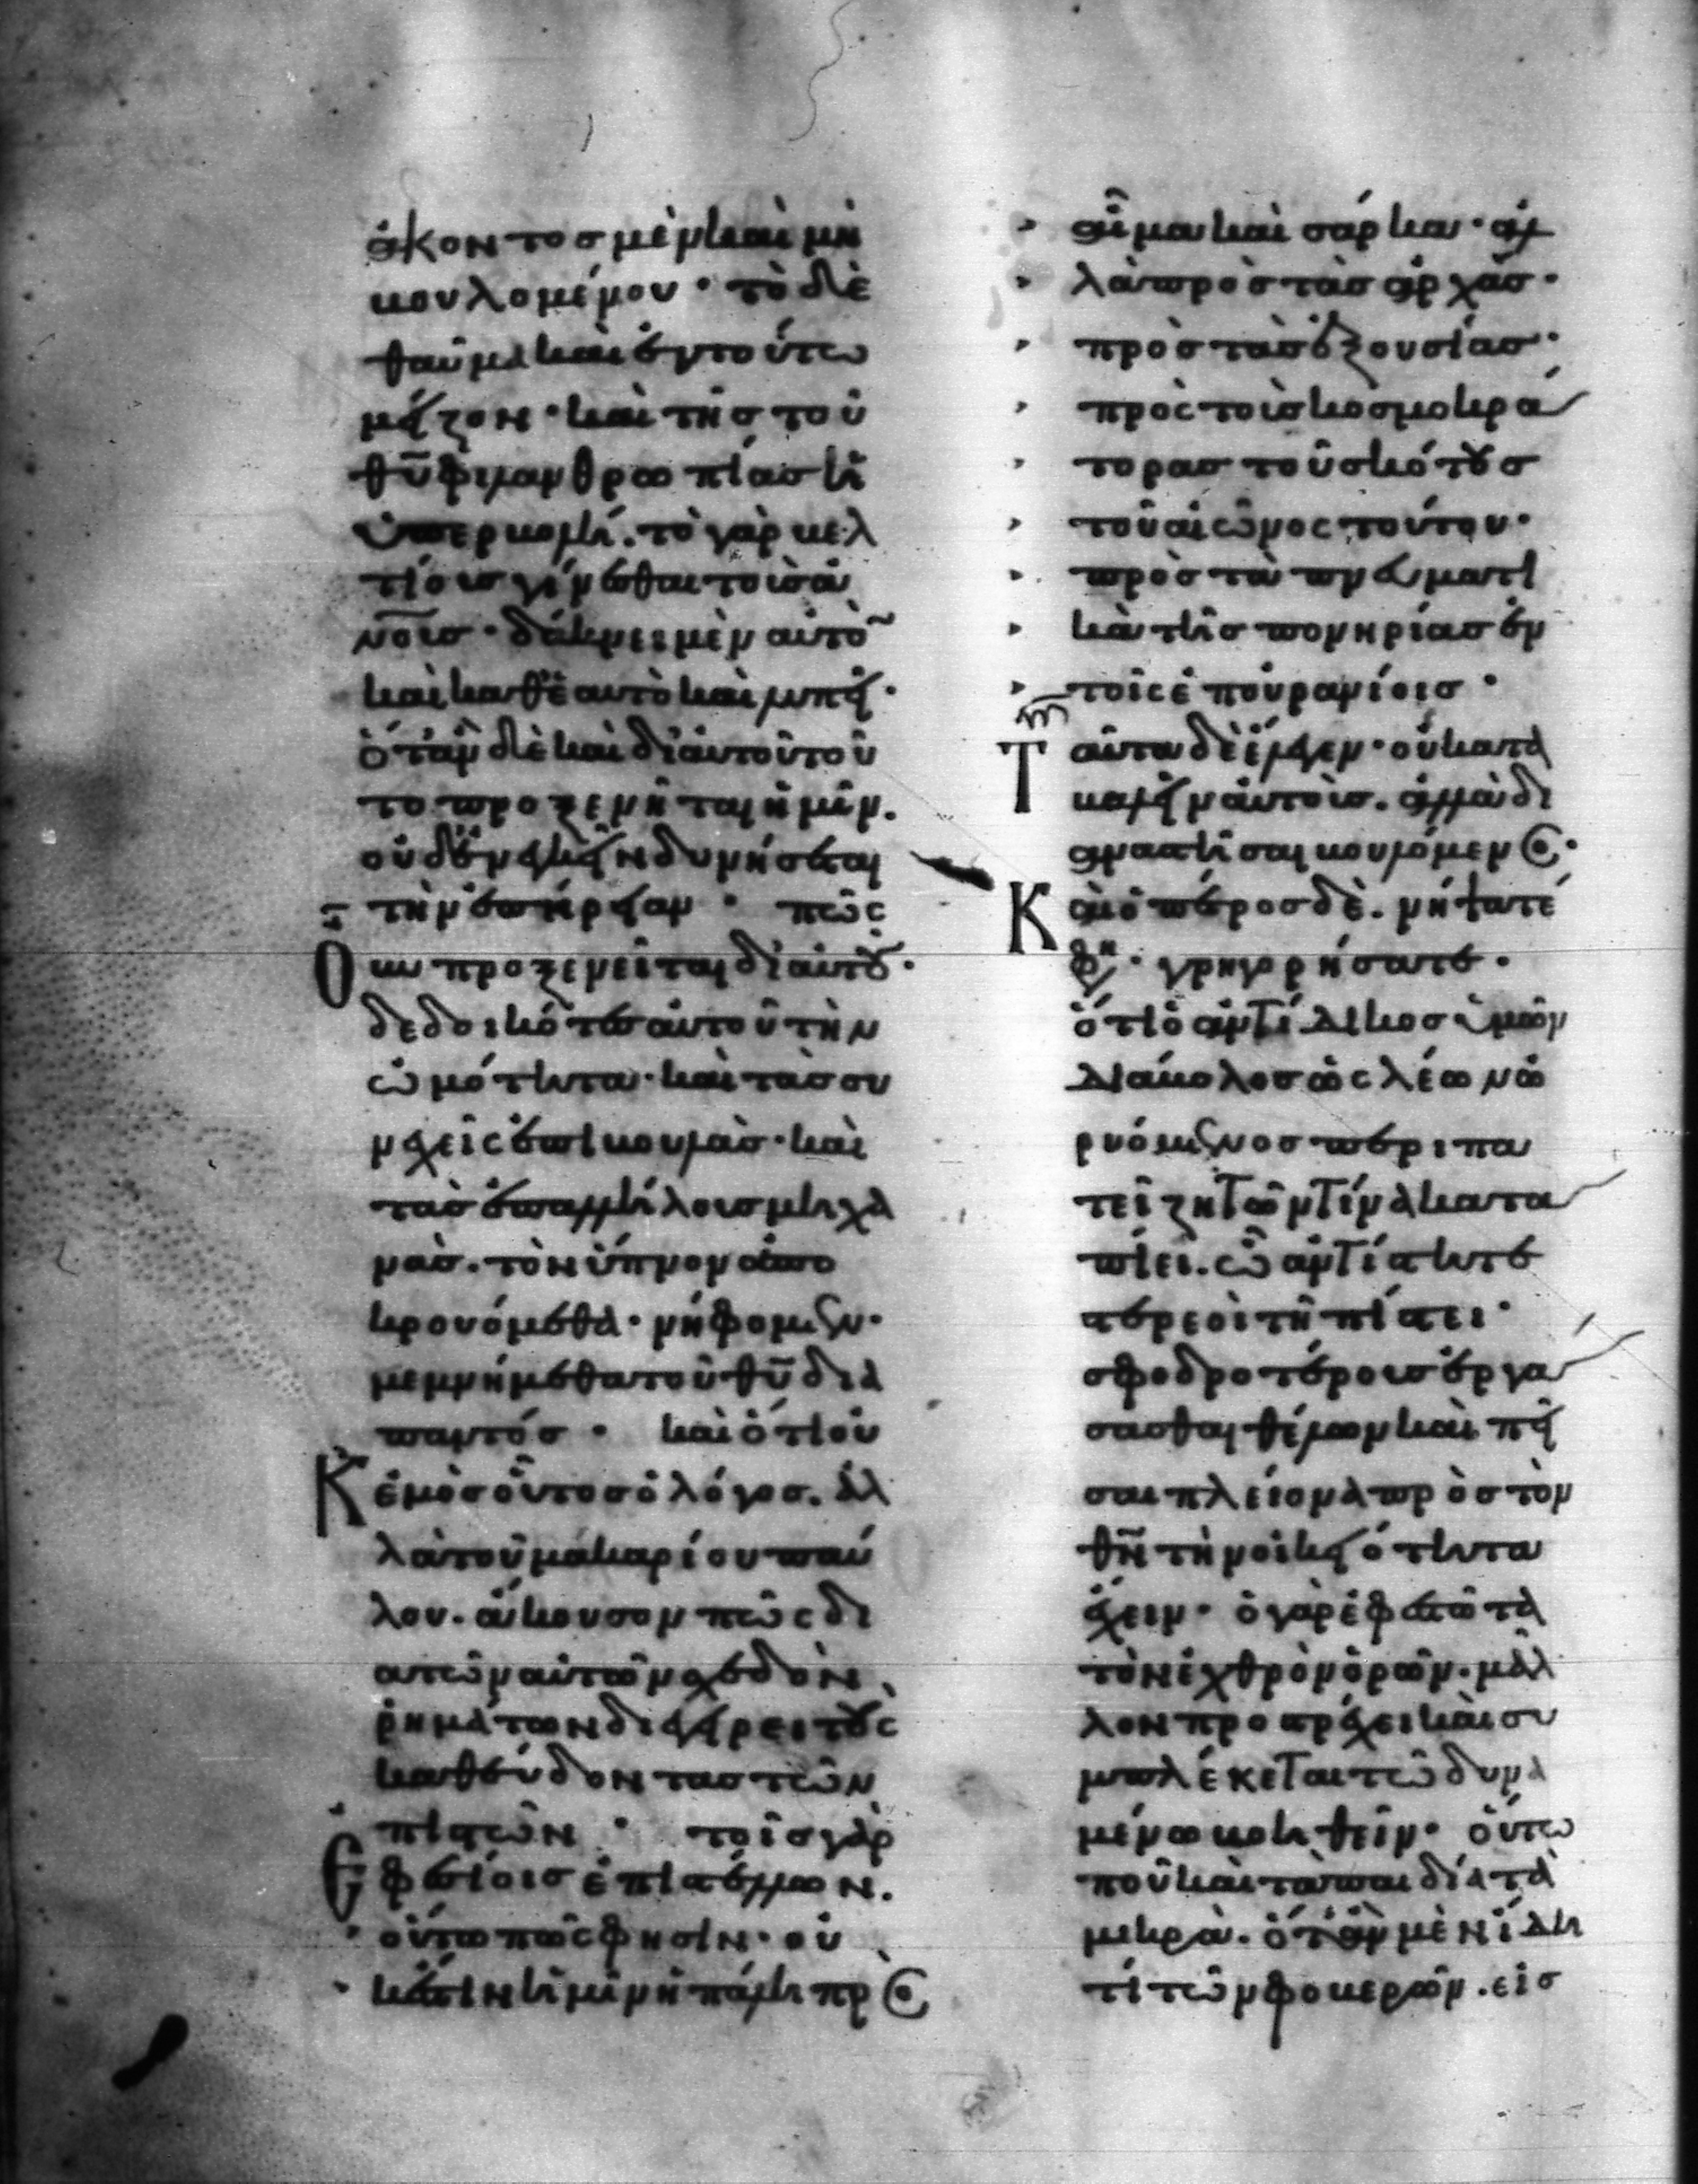 ἄκοντος μὲν καὶ μὴ
βουλομένου · τὸ δὲ
θαῦμα καὶ ἐν τούτω
μεῖζον · καὶ τῆς τοῦ
θῦ φιλανθρωπίας ἡ
ὑπερβολή . τὸ γὰρ βελ
τίοις γίνεσθαι τοὺς ἀ
νοις · δάκνει μὲν αὐτὸ
καὶ καθ' ἑαυτὸ καὶ λυπεῖ ·
ὅταν δὲ καὶ δι' αὐτοῦ τοῦ
το προξενῆται ἡμῖν .
οὐδὲ ἐνεγκεῖν δυνήσεται
τὴν σωτηρίαν · πῶς
Οὖν προξενεῖται δι' αὐτοῦ ·
δεδοικότες αὐτοῦ τὴν
ὠμότητα · καὶ τὰς συ
νεχεῖς ἐπιβουλὰς · καὶ
τὰς ἐπαλλήλους μηχα
νὰς . τὸν ὕπνον ἀπο
κρουόμεθα · νήφομεν ·
μεμνήμεθα τοῦ θῦ δια
παντός · καὶ ὅτι οὐ
Κ ἐμὸς οὗτος ὁ λόγος . ἀλ
λὰ τοῦ μακαρίου παύ
λου . ἄκουσον πῶς δι
α τῶν αὐτῶν σχεδὸν
ῥημάτων διεγείρει τοὺς
καθεύδοντας τῶν
πιστῶν · τοῖς γὰρ
Ἐφεσίοις ἐπιστέλλων .
οὕτω πώς φησιν · οὐ
κ ἔστιν ἡμῖν ἡ πάλη πρὸς
αἷμα καὶ σάρκα · ἀλ
λὰ πρὸς τὰς ἀρχάς ·
πρὸς τὰς ἐξουσίας ·
πρὸς τοὺς κοσμοκρά
τορας τοῦ σκότους
τοῦ αἰῶνος τούτου ·
πρὸς τὰ πνευματι
κὰ τῆς πονηρίας ἐν
τοῖς ἐπουρανίοις ·
Ταῦτα δὲ ἔλεγεν · οὐ κατα
βαλεῖν αὐτοὺς . ἀλλὰ δι
αναστῆσαι βουλόμενος ·
Κ αὶ ὁ πέτρος δὲ . νήψατέ
φη · γρηγορήσατε ·
ὅτι ὁ ἀντίδικος ὑμῶν
διάβολος ὡς λέων ὠ
ρυόμενος περιπα
τεῖ ζητῶν τίνα κατα
πίει . ὧ ἀντίστητε
στερεοὶ τῆ πίστει ·
σφοδροτέρους ἐργα
σασθαι θέλων καὶ πεῖ
σαι πλείονα πρὸς τὸν
θν τὴν οἰκειότητα
ἔχειν · ὁ γὰρ ἐφεστῶτα
τὸν ἐχθρὸν ὁρῶν . μᾶλ
λον προστρέχει καὶ συ
μπλέκεται τῶ δυνα
μένω βοηθεῖν · οὕτω
που καὶ τὰ παιδία τὰ
μικρὰ . ὅταν μὲν ἴδη
τὶ τῶν φοβερῶν . εἰς